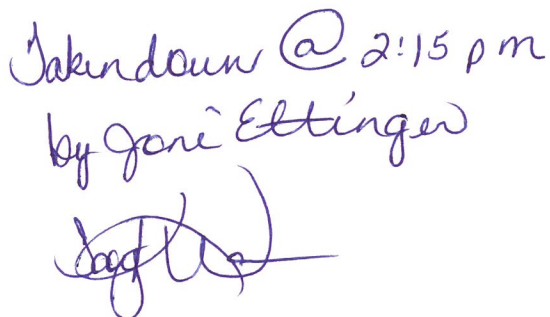 Taken down @ 2:15 pm
by Joni Ettinger